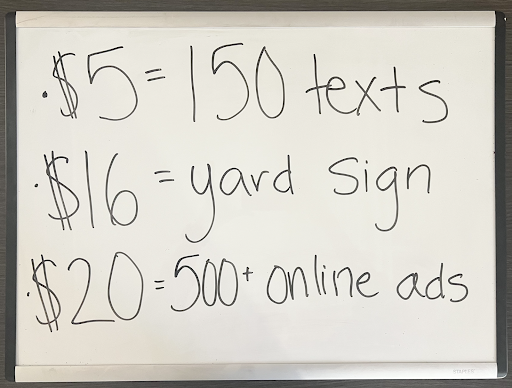 ·$5=150 texts
·$16=yard sign
·$20=500+ online ads